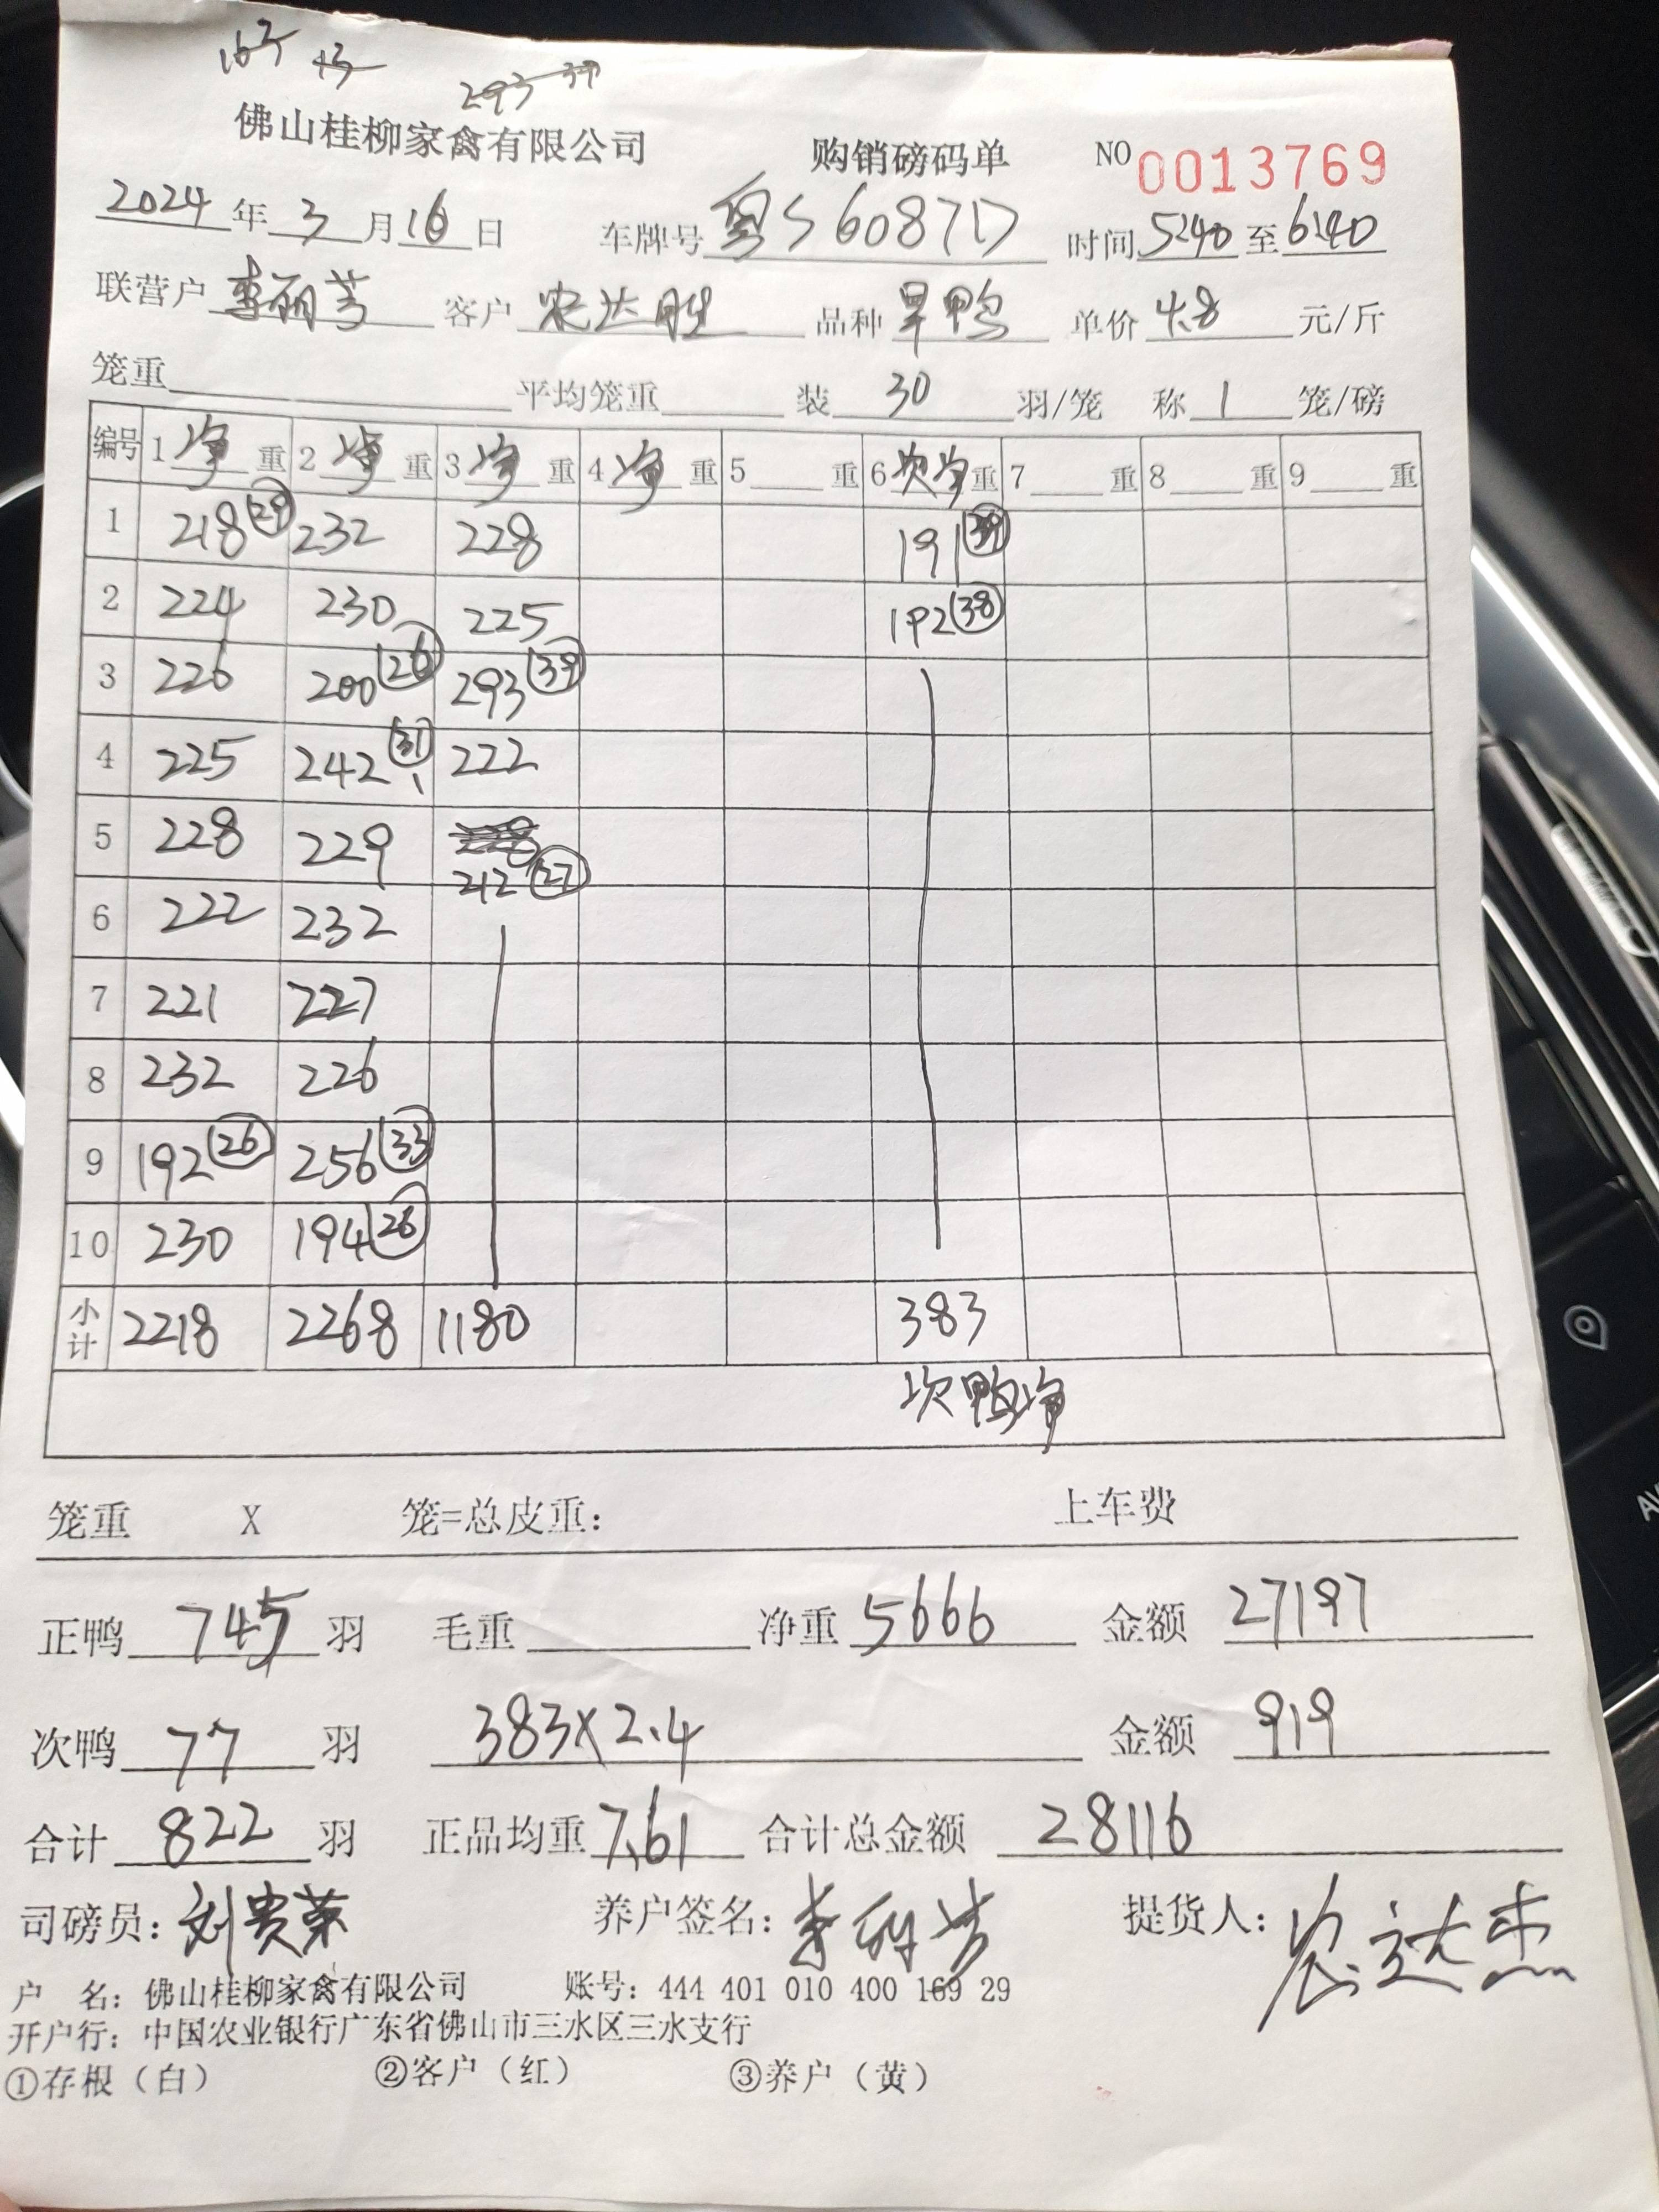 293 39
佛山桂柳家禽有限公司 购销磅码单 NO 0013769
2024 年 3 月 16 日 车牌号 粤S6087D 时间 5:40 至 6:40
联营户 李丽芳 客户 农达胜 品种 旱鸭 单价 4.8 元/斤
笼重 平均笼重 装 30 羽/笼 称 1 笼/磅
编号 1 净 重 2 净 重 3 净 重 4 净 重 5 重 6 次净 重 7 重 8 重 9 重
1 218 (29) 232 228 191 (39)
2 224 230 225 192 (38)
3 226 200 (26) 293 (39)
4 225 242 (31) 222
5 228 229 228
212 (27)
6 222 232
7 221 227
8 232 226
9 192 (26) 256 (33)
10 230 194 (26)
小计 2218 2268 1180 383
次鸭净
笼重 X 笼=总皮重： 上车费
正鸭 745 羽 毛重 净重 5666 金额 27197
次鸭 77 羽 383×2.4 金额 919
合计 822 羽 正品均重 7.61 合计总金额 28116
司磅员：刘贵荣 养户签名：李丽芳 提货人：农达杰
户 名：佛山桂柳家禽有限公司 账号：444 401 010 400 169 29
开户行：中国农业银行广东省佛山市三水区三水支行
①存根（白） ②客户（红） ③养户（黄）